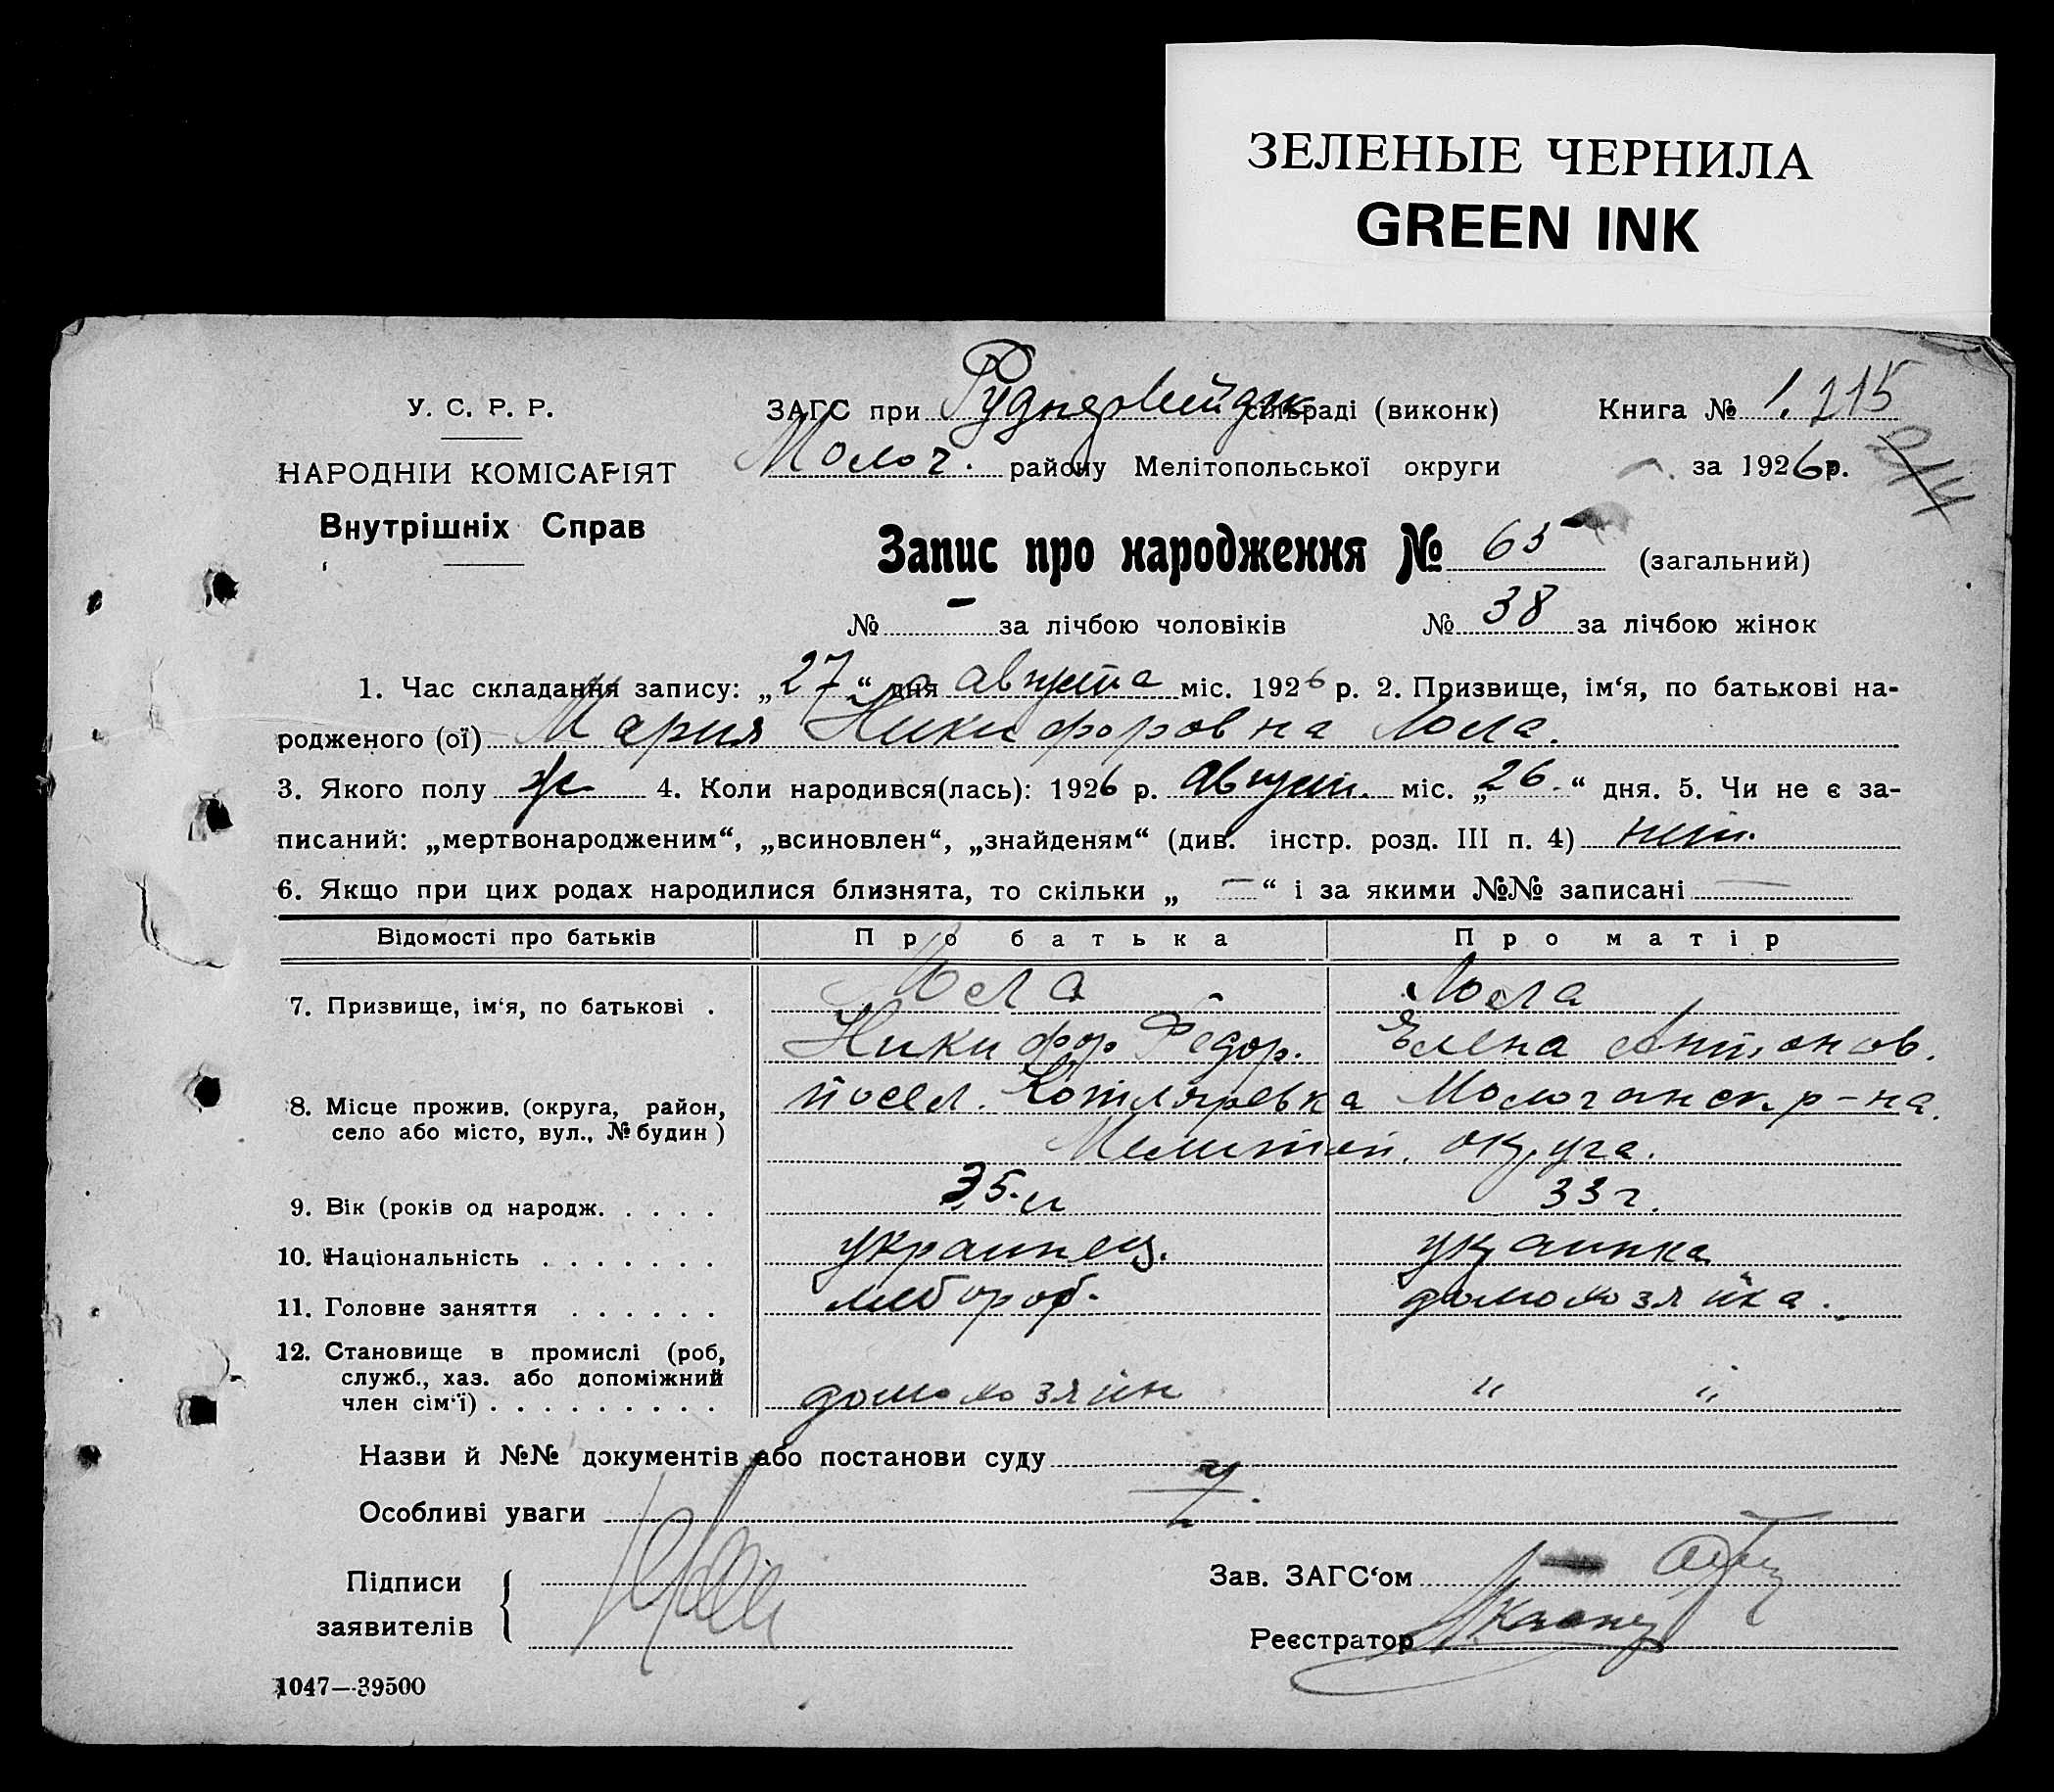 ЗЕЛЕНЫЕ ЧЕРНИЛА
GREEN INK
У. С. Р. Р.
НАРОДНІЙ КОМІСАРІЯТ
Внутрішніх Справ
ЗАГС при Руднервейдк сільраді (виконк)
Молоч. району Мелітопольської округи
Книга № 1. 215
за 1926 р.
214
Запис про народження № 65 (загальний)
№ — за лічбою чоловіків № 38 за лічбою жінок
1. Час складання запису: „27“ дня августа міс. 1926 р. 2. Призвище, ім‘я, по батькові на-
родженого (ої) Мария Никифоровна Лола.
3. Якого полу ж 4. Коли народився(лась): 1926 р. август. міс. „26.“ дня. 5. Чи не є за-
писаний: „мертвонародженим“, „всиновлен“, „знайденям“ (див. інстр. розд. III п. 4) нет.
6. Якщо при цих родах народилися близнята, то скільки „ — “ і за якими №№ записані —
Відомості про батьків Про батька Про матір
7. Призвище, ім‘я, по батькові . Лола Лола
Никифор Федор. Елена Антонов.
8. Місце прожив. (округа, район, посел. Котляревка Молочанск. р-на.
село або місто, вул., № будин) Мелитоп. округа.
9. Вік (років од народж. . . . . 35. л 33 г.
10. Національність . . . . . . . украинец. украинка
11. Головне заняття . . . . . . хлебороб. домохозяйка.
12. Становище в промислі (роб,
служб., хаз. або допоміжний
член сім‘ї) . . . . . . . . . домохозяин " "
Назви й №№ документів або постанови суду
Особливі уваги
Підписи
заявителів
Зав. ЗАГС‘ом
Реєстратор
1047—39500